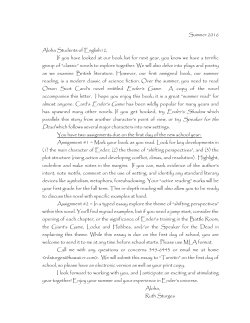 Summer 2016
Aloha Students of English 12,
If you have looked at our book list for next year, you know we have a terrific
group of "classic" novels to explore together. We will also delve into plays and poetry
as we examine British literature. However, our first assigned book, our summer
reading, is a modern classic of science fiction. Over the summer, you need to read
Orson Scott Card's novel entitled Ender's Game. A copy of the novel
accompanies this letter. I hope you enjoy this book; it is a great "summer read" for
almost anyone. Card's Ender's Game has been wildly popular for many years and
has spawned many other novels. If you get hooked, try Ender's Shadow which
parallels this story from another character's point of view, or try Speaker for the
Dead which follows several major characters into new settings.
You have two assignments due on the first day of the new school year.
Assignment #1 – Mark your book as you read. Look for key developments in
(1) the main character of Ender, (2) the theme of "shifting perspectives", and (3) the
plot structure (rising action and developing conflict, climax, and resolution). Highlight,
underline and make notes in the margins. If you can, mark evidence of the author's
intent, note motifs, comment on the use of setting, and identify any standard literary
devices like symbolism, metaphors, foreshadowing. Your "active reading" marks will be
your first grade for the fall term. This in-depth reading will also allow you to be ready
to discuss this novel with specific examples at hand.
Assignment #2 – In a typed essay explore the theme of "shifting perspectives"
within this novel. You'll find myriad examples, but if you need a jump start, consider the
opening of each chapter, or the significance of Ender's training in the Battle Room,
the Giant's Game, Locke and Demosthenes, and/or the Speaker for the Dead in
exploring this theme. While this essay is due on the first day of school, you are
welcome to send it to me at any time before school starts. Please use MLA format.
Call me with any questions or concerns or email me at home
We will submit this essay to "Turnitin" on the first day of
school, so please have an electronic version as well as your print copy.
I look forward to working with you, and I anticipate an exciting and stimulating
year together! Enjoy your summer and your experience in Ender's universe.
Aloha,
Ruth Sturges